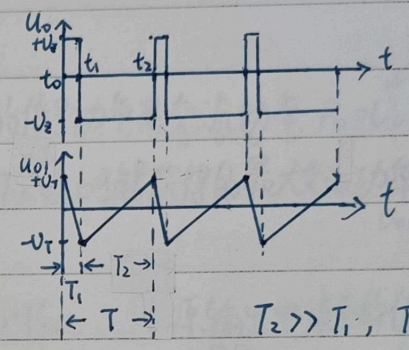 u₀
+Uz
t₀ t₁ t₂ t
-Uz
u₀₁
+UT
t
-UT
T₁ T₂
T
T₂>>T₁,